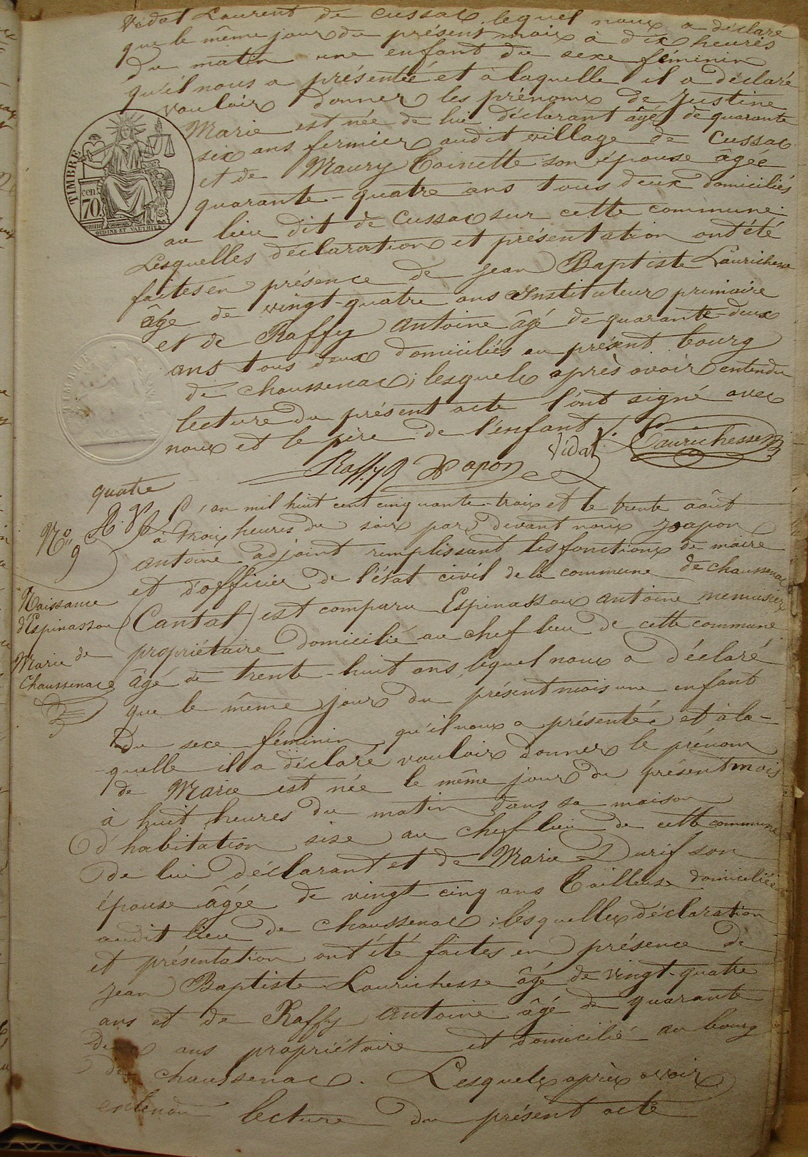 Vidal Laurent de Cussac, lequel nous a déclaré
que le même jour du présent mois à dix heures
du matin une enfant du sexe féminin
qu'il nous a présentée et à laquelle il a déclaré
vouloir donner les prénoms de Justine
Marie est née de lui déclarant âgé de quarante
six ans fermier audit village de Cussac
et de Maury Toinette son épouse âgée
quarante-quatre ans tous deux domiciliés
au lieu dit de Cussac sur cette commune.
Lesquelles déclaration et présentation ont été
faites en présence de Jean Baptiste Laurichesse
âgé de vingt-quatre ans Instituteur primaire
et de Raffy Antoine âgé de quarante-deux
ans tous deux domiciliés au présent bourg
de chaussenac, lesquels après avoir entendu
lecture du présent acte l'ont signé avec
nous et le père de l'enfant.
Vidal Laurichesse
Raffy Japon
TIMBRE
cen
70
quatre
No
9
Naissance
d'Espinassou
Marie de
Chaussenac
L'an mil huit cent cinquante-trois et le trente août
à trois heures du soir par devant nous Japon
antoine adjoint remplissant les fonctions de maire
et d'officier de l'état civil de la commune de chaussenac
(Cantal) est comparu Espinassou antoine menuisier
propriétaire domicilié au chef lieu de cette commune
âgé de trente-huit ans, lequel nous a déclaré
que le même jour du présent mois une enfant
du sexe féminin qu'il nous a présentée et à la-
quelle il a déclaré vouloir donner le prénom
de Marie est née le même jour du présent mois
à huit heures du matin dans sa maison
d'habitation sise au chef lieu de cette commune
de lui déclarant et de Marie Durif son
épouse âgée de vingt cinq ans Tailleuse domiciliée
audit lieu de chaussenac; lesquelles déclaration
et présentation ont été faites en présence de
Jean Baptiste Laurichesse âgé de vingt-quatre
ans et de Raffy Antoine âgé de quarante
deux ans propriétaire et domicilié au bourg
de chaussenac. Lesquels après avoir
entendu lecture du présent acte